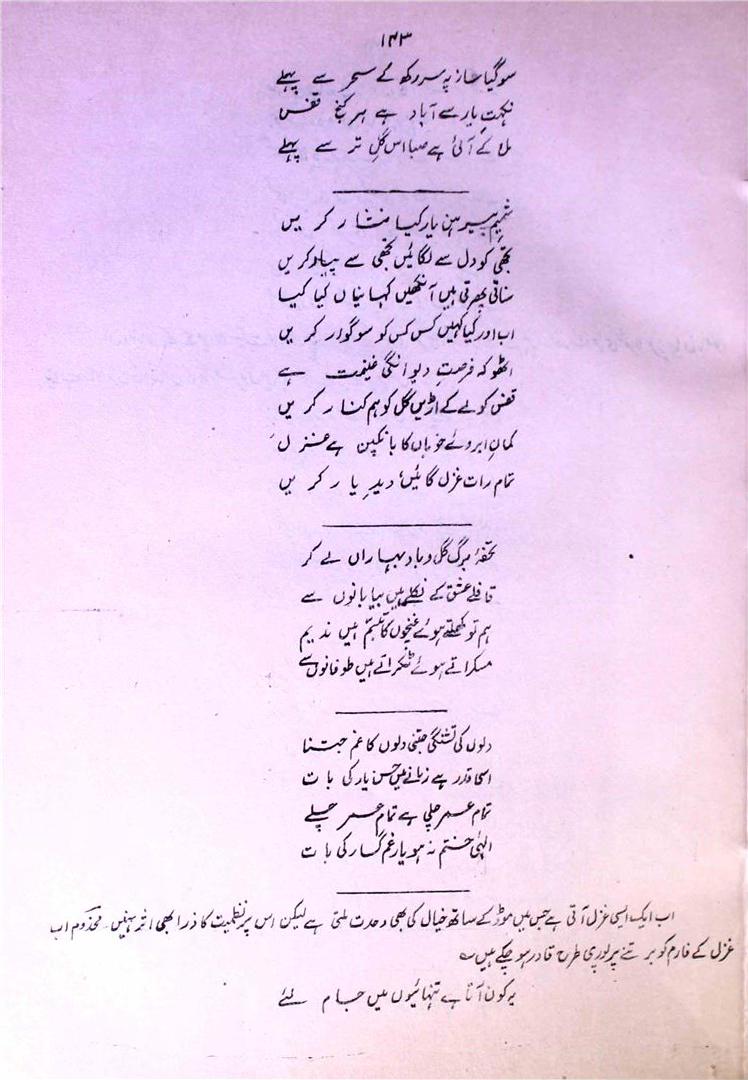 ۱۴۳
سو گیا ساز پہ سر رکھ کے سحر سے پہلے
نکہتِ یار سے آباد ہے ہر کنج قفس
مل کے آئی ہے صبا اس گلِ تر سے پہلے
شمیم پیرہن یار کیا نثار کریں
تجھی کو دل سے لگائیں تجھی سے پیار کریں
سناتی پھرتی ہیں آنکھیں کہانیاں کیا کیا
اب اور کیا کہیں کس کس کو سوگوار کریں
اٹھو کہ فرصتِ دیوانگی غنیمت ہے
قفس کو لے کے اڑیں گل کو ہم کنار کریں
کمانِ ابروئے خوباں کا بانکپن ہے غزل
تمام رات غزل گائیں دیدِ یار کریں
تحفۂ برگ گل و باد بہاراں لے کر
قافلے عشق کے نکلے ہیں بیابانوں سے
ہم تو کھلتے ہوئے غنچوں کا تبسم ہیں ندیم
مسکراتے ہوئے ٹکراتے ہیں طوفانوں سے
دلوں کی تشنگی جتنی دلوں کا غم جتنا
اسی قدر ہے زمانے میں حسن یار کی بات
تمام عمر چلی ہے تمام عمر چلے
الٰہی ختم نہ ہو یار غم گسار کی بات
اب ایک ایسی غزل آتی ہے جس میں موڈ کے ساتھ خیال کی بھی وحدت ملتی ہے لیکن اس پر نظمیت کا ذرا بھی اثر نہیں۔ مخدوم اب
غزل کے فارم کو برتنے پر پوری طرح قادر ہو چکے ہیں ؎
یہ کون آتا ہے تنہائیوں میں جام لئے